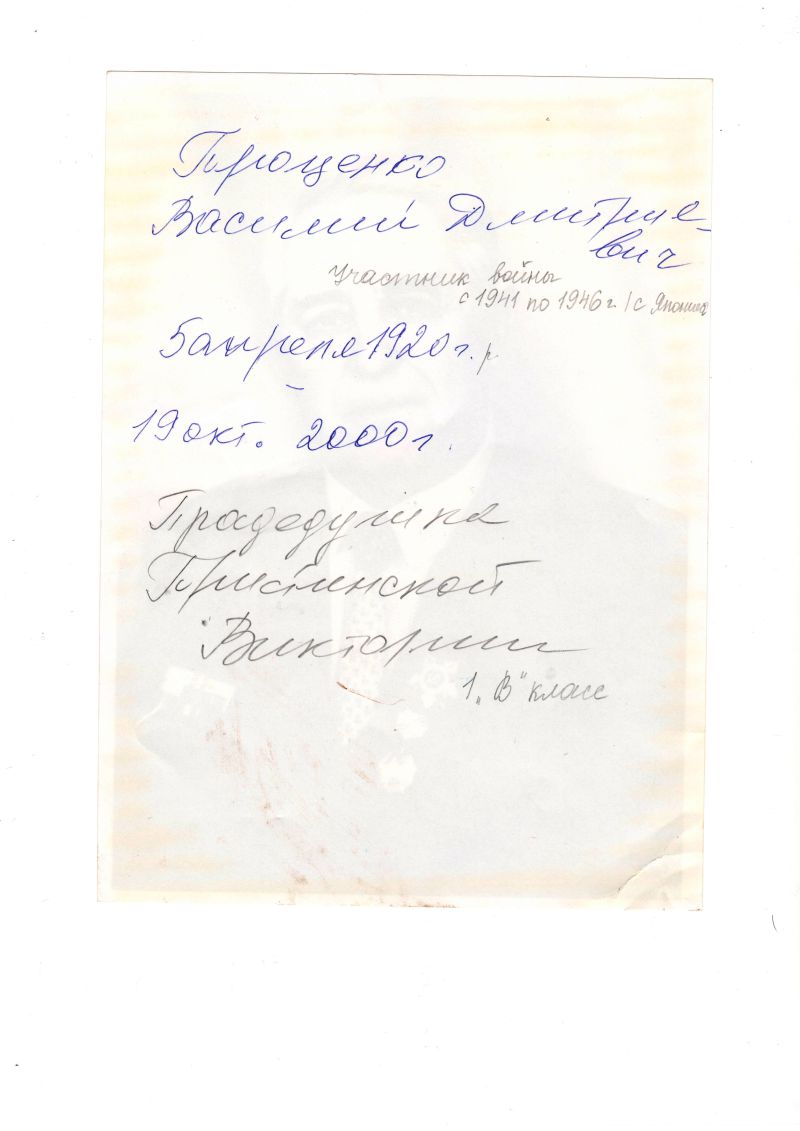 Проценко
Василий Дмитрие-
вич
участник войны
с 1941 по 1946 г. /с Японией
5 апреля 1920 г. р
–
19 окт. 2000 г.
Прадедушка
Виктории
1 „В" класс